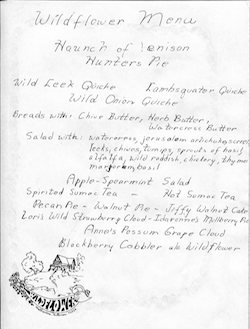 Wildflower Menu
Haunch of Venison
Hunters Pie
Wild Leek Quiche Lambsquater Quiche
Wild Onion Quiche
Breads with: Chive Butter, Herb Butter,
Watercress Butter
Salad with: watercress, jerusalem artichokes, cress
leeks, chives, turnips, sprouts of basil
alfalfa, wild raddish, chickory, thyme
marjoram, basil
Apple-Spearmint Salad
Spirited Sumac Tea - Hot Sumac Tea
Pecan Pie - Walnut Pie - Jiffy Walnut Cake
Lori's Wild Strawberry Cloud - Idarenne's Mulberry Pie
Anne's Possum Grape Cloud
Blackberry Cobbler ala Wildflower
WILDFLOWER